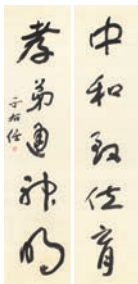 中和致位育
孝弟通神明
于右任